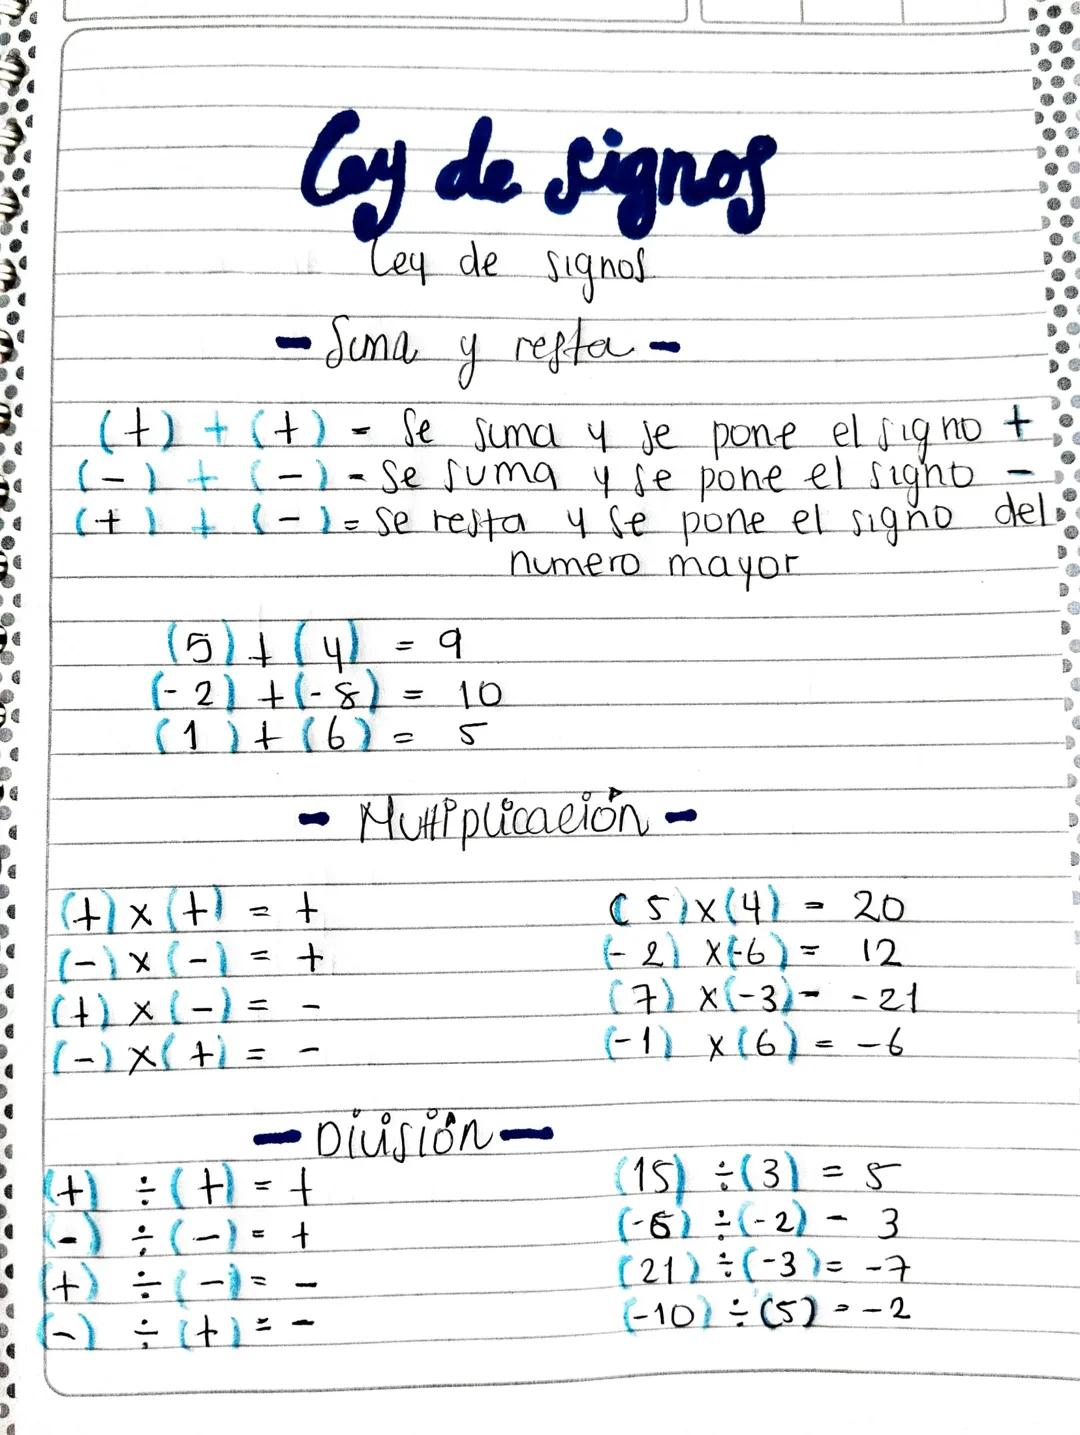 Ley de signos
Ley de signos
- Suma y resta -
(+) + (+) - Se suma y se pone el signo +
(-) + (-) - Se suma y se pone el signo -
(+) + (-) = Se resta y se pone el signo del
numero mayor
(5) + (4) = 9
(-2) + (-8) = 10
(1) + (6) = 5
- Multiplicación -
(+) x (+) = + (5) x (4) = 20
(-) x (-) = + (-2) x (-6) = 12
(+) x (-) = - (7) x (-3) = -21
(-) x (+) = - (-1) x (6) = -6
- División -
(+) ÷ (+) = + (15) ÷ (3) = 5
(-) ÷ (-) = + (-6) ÷ (-2) - 3
(+) ÷ (-) = - (21) ÷ (-3) = -7
(-) ÷ (+) = - (-10) ÷ (5) = -2